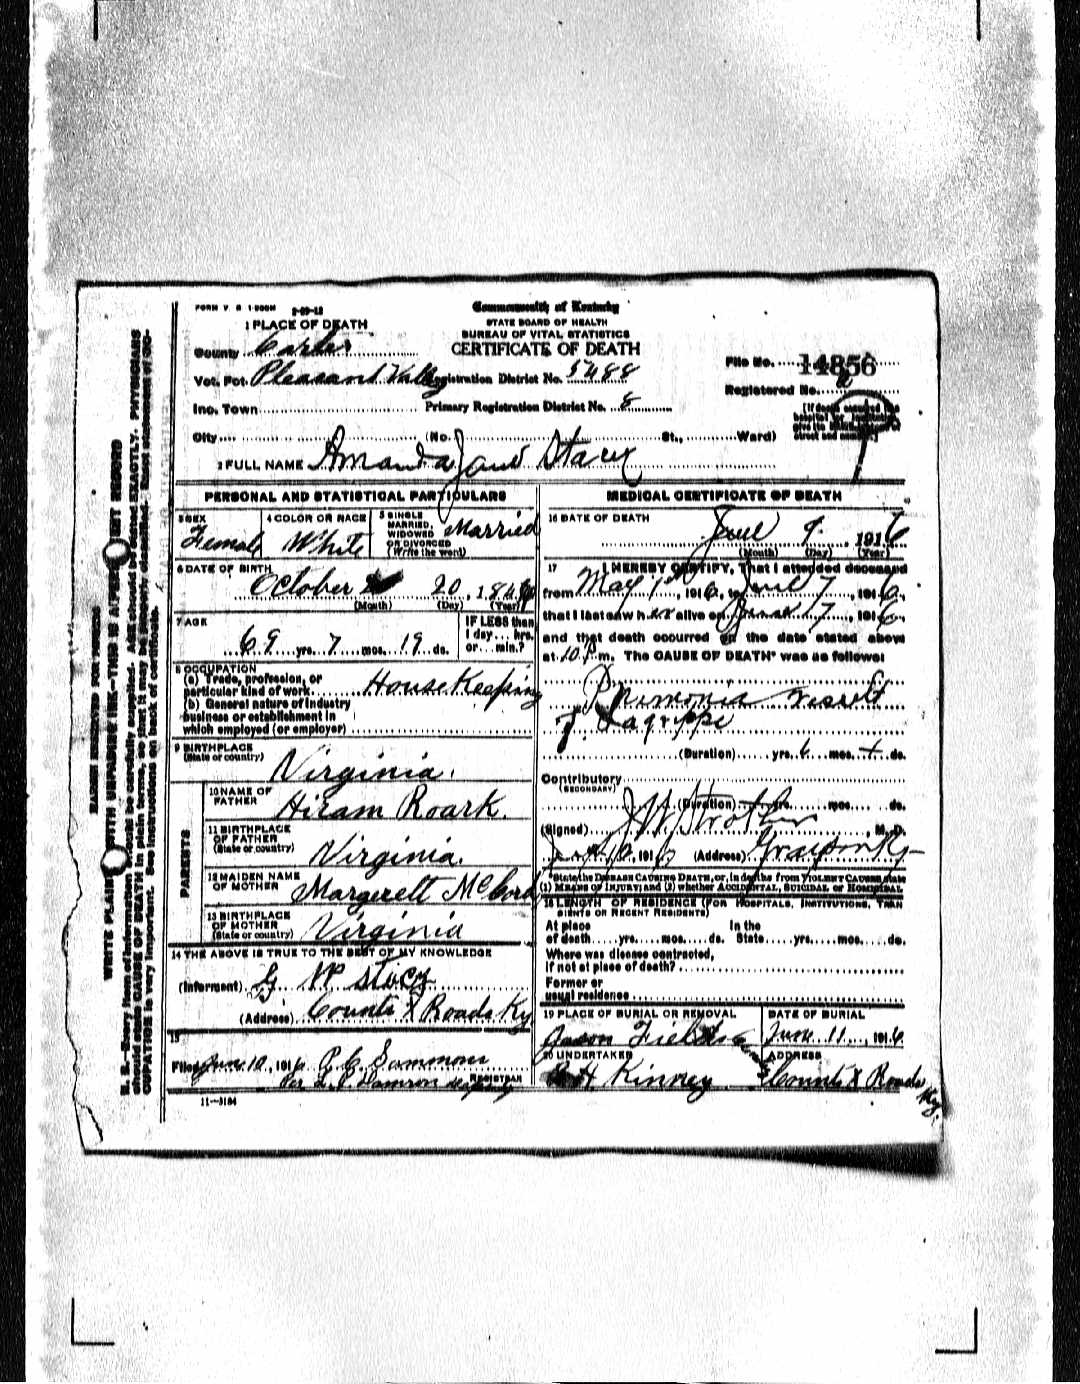 FORM V. S. 1-500M 2-29-12
Commonwealth of Kentucky
STATE BOARD OF HEALTH
BUREAU OF VITAL STATISTICS
CERTIFICATE OF DEATH
1 PLACE OF DEATH
County Carter
Vot. Pct. Pleasant Valley Registration District No. 5488
Inc. Town Primary Registration District No. 8
City (No. St., Ward)
File No. 14856
Registered No.
2 FULL NAME Amanda Jane Stacy
PERSONAL AND STATISTICAL PARTICULARS
3 SEX Female
4 COLOR OR RACE White
5 SINGLE MARRIED, WIDOWED OR DIVORCED (Write the word) Married
6 DATE OF BIRTH
October 20, 184
(Month) (Day) (Year)
7 AGE
69 yrs. 7 mos. 19 ds.
IF LESS than 1 day... hrs. or... min.?
8 OCCUPATION
(a) Trade, profession, or
particular kind of work House Keeping
(b) General nature of industry
business or establishment in
which employed (or employer)
9 BIRTHPLACE
(State or country) Virginia.
PARENTS
10 NAME OF FATHER Hiram Roark.
11 BIRTHPLACE OF FATHER (State or country) Virginia.
12 MAIDEN NAME OF MOTHER Margerett McCord
13 BIRTHPLACE OF MOTHER (State or country) Virginia
14 THE ABOVE IS TRUE TO THE BEST OF MY KNOWLEDGE
(Informant) Stacy
(Address) Counts X Roads Ky
15
Filed June 10, 1916 Sammons
Per Damron deputy REGISTRAR
11—3184
MEDICAL CERTIFICATE OF DEATH
16 DATE OF DEATH June 9, 1916
(Month) (Day) (Year)
17 I HEREBY CERTIFY, That I attended deceased
from May 1st, 1916, to June 7, 1916,
that I last saw her alive on June 7, 1916,
and that death occurred on the date stated above
at 10 P.m. The CAUSE OF DEATH* was as follows:
Pnimonia result
of Lagrippe
(Duration) yrs. mos. ds.
Contributory
(SECONDARY)
(Duration) yrs. mos. ds.
(Signed) J W Strother, M. D.
10, 1916 (Address) Grayson Ky
*State the DISEASE CAUSING DEATH, or, in deaths from VIOLENT CAUSES, state
(1) MEANS OF INJURY; and (2) whether ACCIDENTAL, SUICIDAL or HOMICIDAL
18 LENGTH OF RESIDENCE (FOR HOSPITALS, INSTITUTIONS, TRANSIENTS OR RECENT RESIDENTS)
At place In the
of death yrs. mos. ds. State yrs. mos. ds.
Where was disease contracted,
if not at place of death?
Former or
usual residence
19 PLACE OF BURIAL OR REMOVAL
Jason Fields
DATE OF BURIAL
June 11, 1916
20 UNDERTAKER
H Kinney
ADDRESS
Counts X Roads Ky.
MARGIN RESERVED FOR BINDING